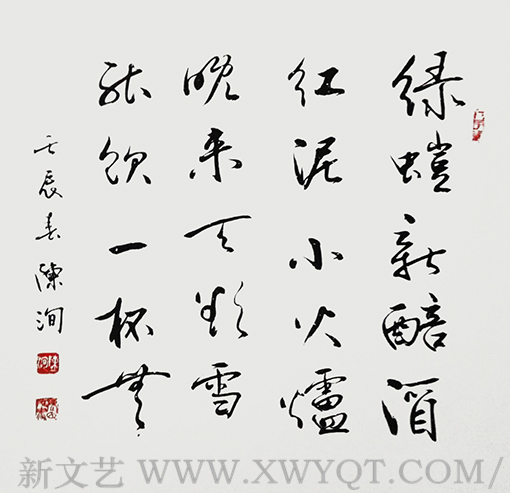 绿螘新醅酒
红泥小火爐
晚来天欲雪
能饮一杯無
壬辰春陳洵
新文艺 WWW.XWYQT.COM/